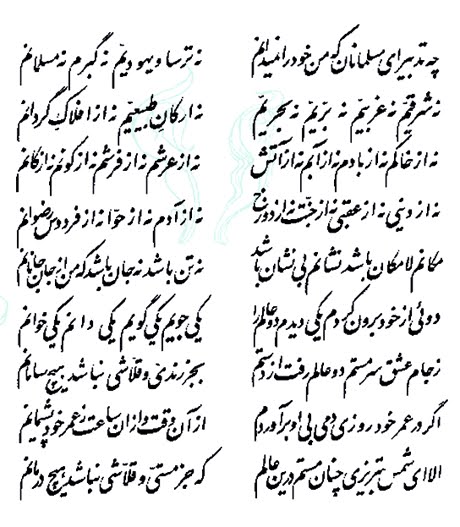 چه تدبیر ای مسلمانان که من خود را نمیدانم نه ترسا و یهودیّم نه گبرم نه مسلمانم
نه شرقیّم نه غربیّم نه برّیّم نه بحریّم نه ارکان طبیعیّم نه از افلاک گردانم
نه از خاکم نه از بادم نه از آبم نه از آتش نه از عرشم نه از فرشم نه از کونم نه از کانم
نه از دنیی نه از عقبی نه از جنّت نه از دوزخ نه از آدم نه از حوّا نه از فردوس رضوانم
مکانم لامکان باشد نشانم بی نشان باشد نه تن باشد نه جان باشد که من از جان جانانم
دوئی از خود برون کردم یکی دیدم دو عالم را یکی جویم یکی گویم یکی دانم یکی خوانم
زجام عشق سرمستم دو عالم رفت از دستم بجز رندی و قلّاشی نباشد هیچ سامانم
اگر در عمر خود روزی دمی بی او برآوردم از آن وقت و از آن ساعت ز عمر خود پشیمانم
الا ای شمس تبریزی چنان مستم درین عالم که جز مستیّ و قلّاشی نباشد هیچ درمانم